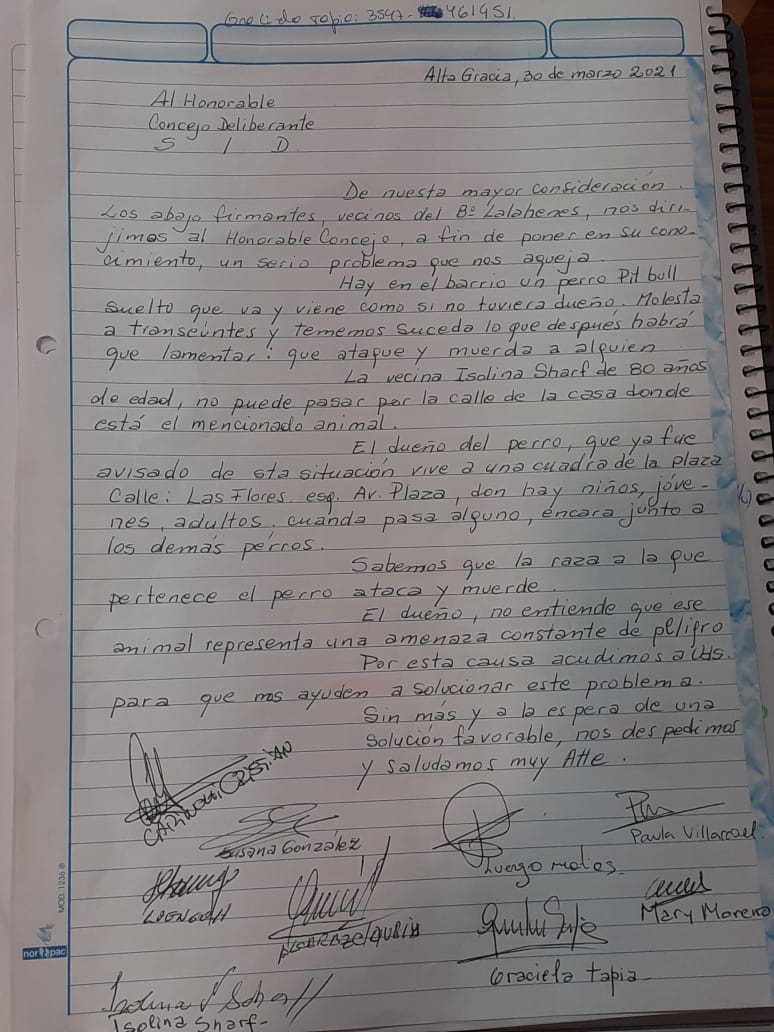 Graciela Tapia: 3547- 461451.
Alta Gracia, 30 de marzo 2021
Al Honorable
Concejo Deliberante
S / D
De nuesta mayor consideración.
Los abajo firmantes, vecinos del Bº Lalahenes, nos diri-
jimos al Honorable Concejo, a fin de poner en su cono-
cimiento, un serio problema que nos aqueja.
Hay en el barrio un perro Pit bull
suelto que va y viene como si no tuviera dueño. Molesta
a transeúntes y tememos suceda lo que después habrá
que lamentar: que ataque y muerda a alguien
La vecina Isolina Sharf de 80 años
de edad, no puede pasar por la calle de la casa donde
está el mencionado animal.
El dueño del perro, que ya fue
avisado de sta situación vive a una cuadra de la plaza
Calle: Las Flores esq. Av. Plaza, don hay niños, jóve-
nes, adultos. cuando pasa alguno, encara junto a
los demás perros.
Sabemos que la raza a la que
pertenece el perro ataca y muerde.
El dueño, no entiende que ese
animal representa una amenaza constante de peligro
Por esta causa acudimos a Uds.
para que nos ayuden a solucionar este problema.
Sin más y a la espera de una
solución favorable, nos despedimos
y saludamos muy Atte.
CRISTIAN
Susana González
Luengo Matias
Paula Villarroel.
Mary Moreno
Graciela tapia
Isolina Sharf-
MOD. 1236 ®
norpac